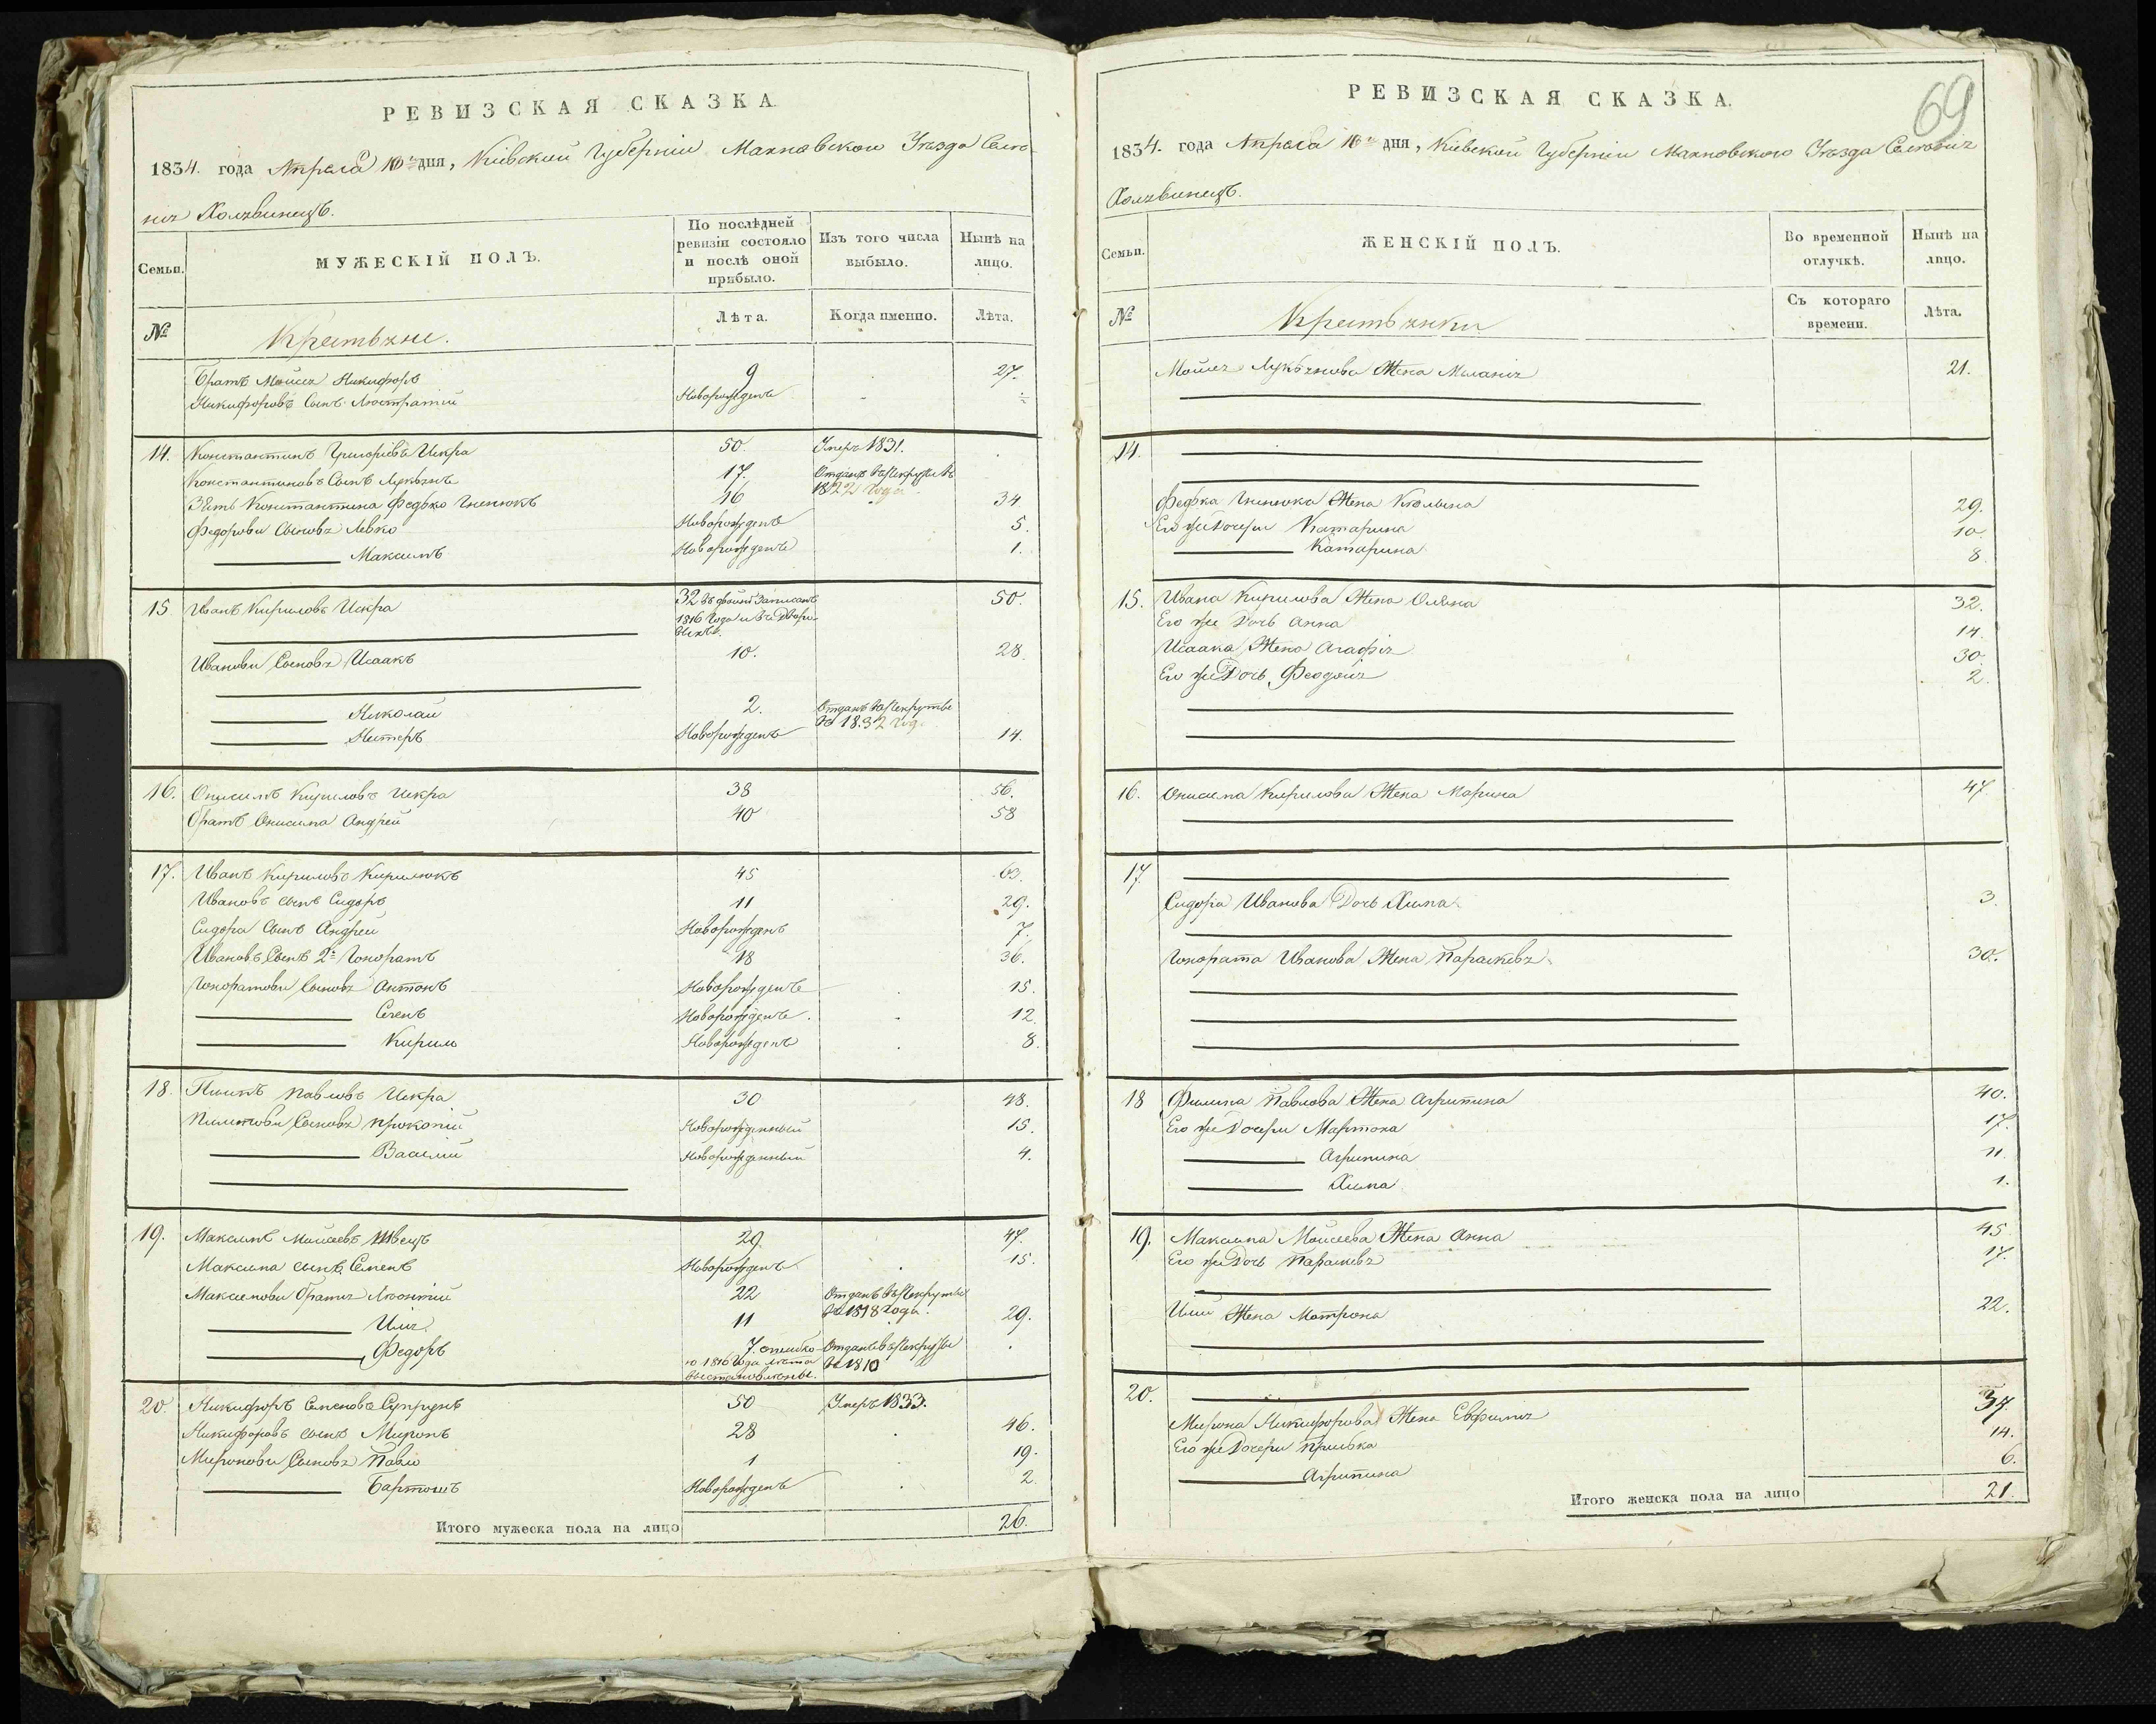 РЕВИЗСКАЯ СКАЗКА.
1834. года Апреля 10го дня, Кіевской Губерніи Махновского Уезда Селе-
нія
Семьи.
МУЖЕСКІЙ ПОЛЪ.
По послѣдней ревизіи состояло и послѣ оной прибыло.
Изъ того числа выбыло.
Нынѣ на лицо.
№
Крестьяне.
Лѣта.
Когда именно.
Лѣта.
Братъ Мойсея Никифоръ 9 27.
Никифоровъ Сынъ Новорожденъ
14. Константинъ Григорьевъ Искра 50. Умеръ 1831.
Константиновъ Сынъ Лукьянъ 17. Отданъ въ Рекруты въ
1822 Года
Зять Константина Федько 16 34
Федоровы Сыновья Левко Новорожденъ 5.
Максимъ Новорожденъ 1.
15. Иванъ Кириловъ Искра 32 50.
1816 Года и въ Дворо-
выхъ.
Ивановы Сыновья Исаакъ 10. 28.
Николай 2. Отданъ въ Рекруты
въ 1832 год.
Новорожденъ 14.
16. Онисимъ Кириловъ Искра 38 56.
Братъ Онисима Андрей 40 58
17. Иванъ Кириловъ Кирилюкъ 45 63.
Ивановъ сынъ Сидоръ 11 29.
Сидора Сынъ Андрей Новорожденъ 7.
Ивановъ Сынъ 2й Гоноратъ 18 36.
Гоноратовы Сыновья Антонъ Новорожденъ 15.
Новорожденъ 12.
Кирило Новорожденъ 8.
18. Павловъ Искра 30 48.
Сыновья Прокопій Новорожденный 15.
Василій Новорожденный 4.
19. Максимъ Мойсеевъ Швецъ 29 47.
Максима сынъ Семенъ Новорожденъ 15.
Максимовы Братья Леонтій 22 Отданъ въ Рекруты
въ 1818 Года.
Илія 11 29.
Федоръ 7. Отданъ въ Рекруты
1816 Года лета въ 1810
20. Никифоръ Семеновъ Супрунъ 50 Умеръ 1833.
Никифоровъ сынъ Миронъ 28 46.
Мироновы Сыновья Павло 1 19.
Бартошъ Новорожденъ 2.
Итого мужеска пола на лицо 26.
69
РЕВИЗСКАЯ СКАЗКА.
1834. года Апреля 10го дня, Кіевской Губерніи Махновского Уезда Селенія
Семьи.
ЖЕНСКІЙ ПОЛЪ.
Во временной отлучкѣ.
Нынѣ на лицо.
№
Крестьянки
Съ котораго времени.
Лѣта.
Мойсея Лукьянова Жена Меланія 21.
14.
Федька Жена 29.
Его же Дочери Катарина 10.
Катарина 8
15. Ивана Кирилова Жена Оляна 32.
Его же Дочь Анна 14.
Исаака Жена Агафія 30.
Его же Дочь Феодосія 2.
16. Онисима Кирилова Жена Марина 47
17.
Сидора Иванова Дочь Химка 3.
Гонората Иванова Жена Параскевія 30.
18 Филипа Павлова Жена Агрипина 40.
Его же Дочери Мартоха 17.
Агрипина 11.
Химка 1.
19. Максима Мойсеева Жена Анна 45
Его же Дочь Параскевія 17.
Иліи Жена Матрона 22.
20.
Мирона Никифорова Жена Евфимія 37.
Его же Дочери Приська 14.
Агрипина 6.
Итого женска пола на лицо 21.